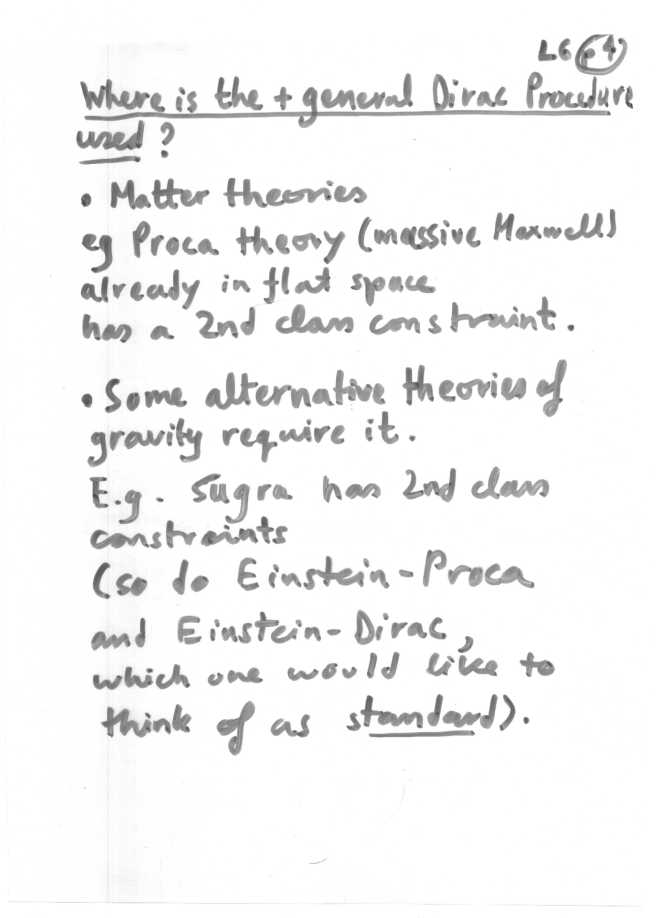 L6 p4
Where is the + general Dirac Procedure
used?
• Matter theories
eg Proca theory (massive Maxwell)
already in flat space
has a 2nd class constraint.
• Some alternative theories of
gravity require it.
E.g. Sugra has 2nd class
constraints
(so do Einstein-Proca
and Einstein-Dirac,
which one would like to
think of as standard).